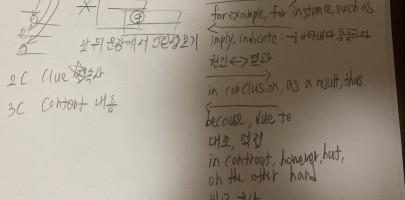 앞 뒤 문장에서 연관성 보기
2C Clue 접속사
3C Content 내용
for example, for instance, such as
imply, indicate : ~을 나타내다 함축하다
원인 ↔ 결과
in conclusion, as a result, thus
because, due to
대조, 역접
in contrast, however, but,
on the other hand